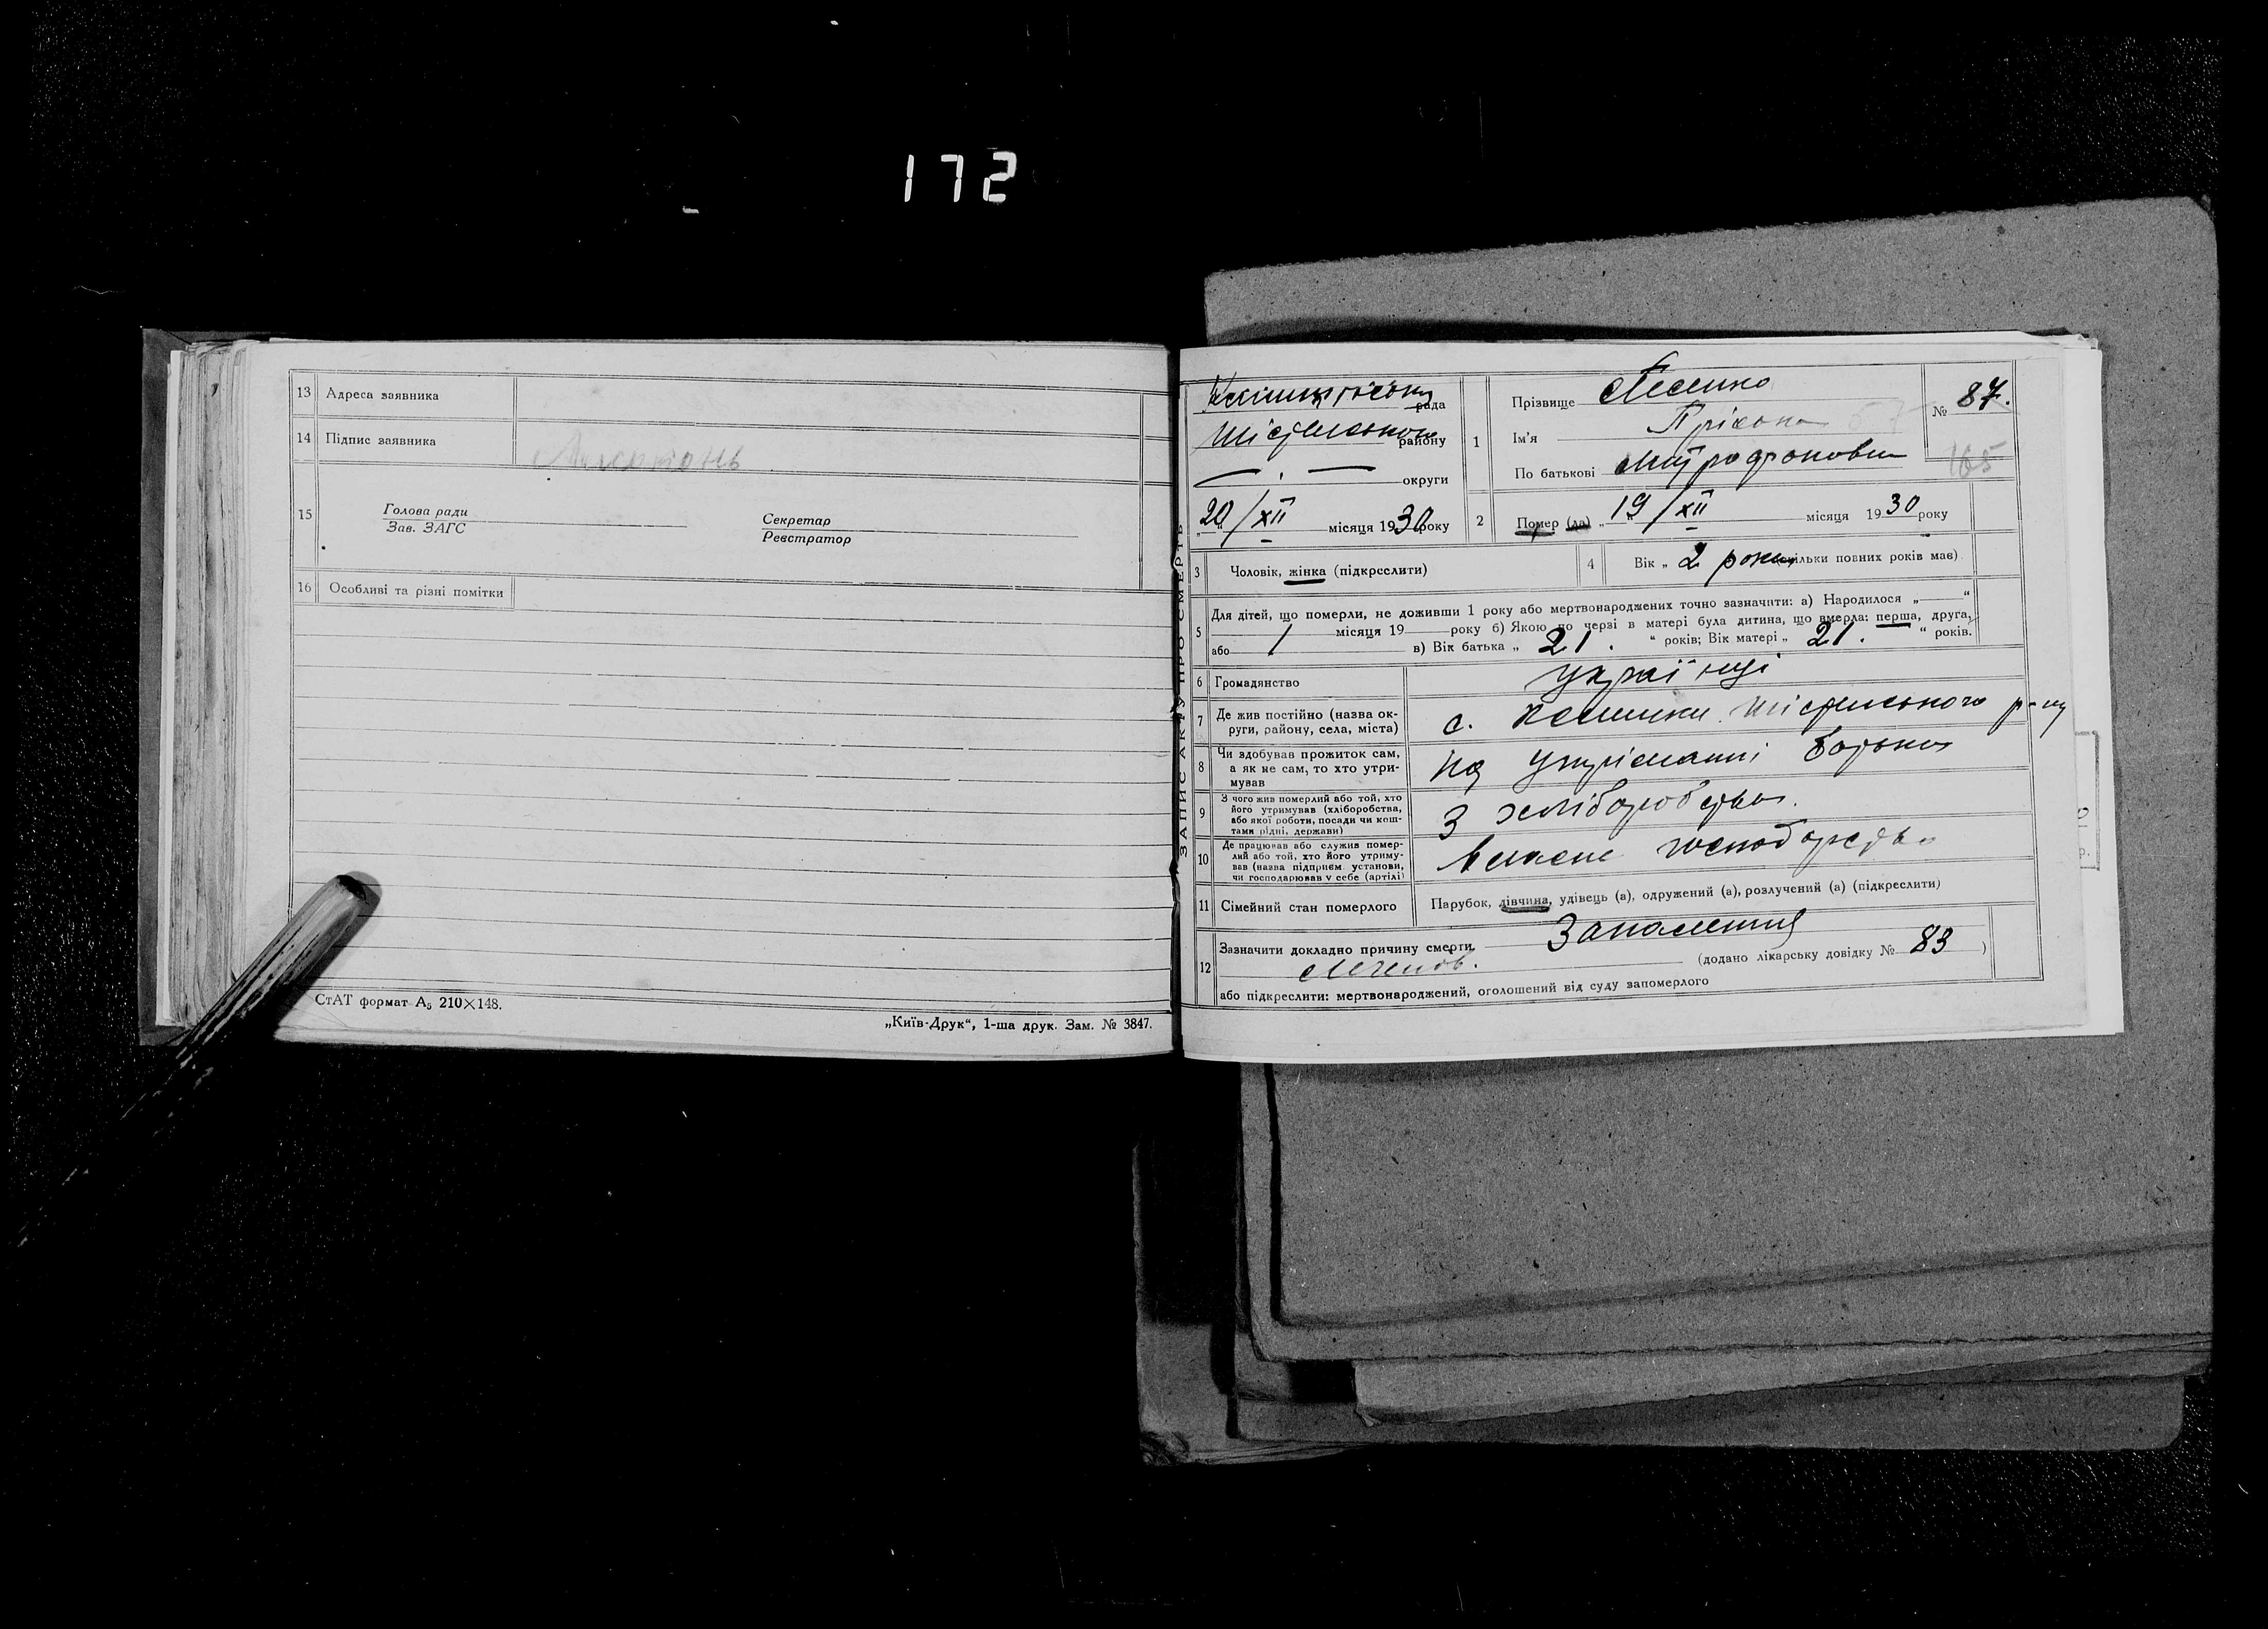 172
13 Адреса заявника
14 Підпис заявника
15 Голова ради
Зав. ЗАГС
Секретар
Реєстратор
16 Особливі та різні помітки
СтАТ формат А₅ 210×148.
„Київ-Друк“, 1-ша друк. Зам. № 3847.
ЗАПИС АКТУ ПРО СМЕРТЬ
рада
району
— . — округи
20/XII місяця 1930 року
1 Прізвище
Ім'я Пріська
По батькові Митрофановна
№ 87.
165
2 Помер (ла) „19/XII місяця 1930 року
3 Чоловік, жінка (підкреслити)
4 Вік „ 2 роки (скільки повних років має)
5 Для дітей, що померли, не доживши 1 року або мертвонароджених точно зазначити: а) Народилося „—“
місяця 19— року б) Якою по черзі в матері була дитина, що вмерла: перша, друга,
або 1 в) Вік батька „ 21. “ років; Вік матері „ 21. “ років.
6 Громадянство українці
7 Де жив постійно (назва ок-
руги, району, села, міста)
с. р-ну
8 Чи здобував прожиток сам,
а як не сам, то хто утри-
мував
На утріманні батька
9 З чого жив померлий або той, хто
його утримував (хліборобства,
або якої роботи, посади чи кош-
тами рідні, держави)
З хліборобства.
10 Де працював або служив помер-
лий або той, хто його утриму-
вав (назва підприєм. установи,
чи господарював у себе (артілі)
Власне господарство
11 Сімейний стан померлого Парубок, дівчина, удівець (а), одружений (а), розлучений (а) (підкреслити)
12 Зазначити докладно причину смерти. Запалення
легенів.
(додано лікарську довідку № 83 )
або підкреслити: мертвонароджений, оголошений від суду запомерлого